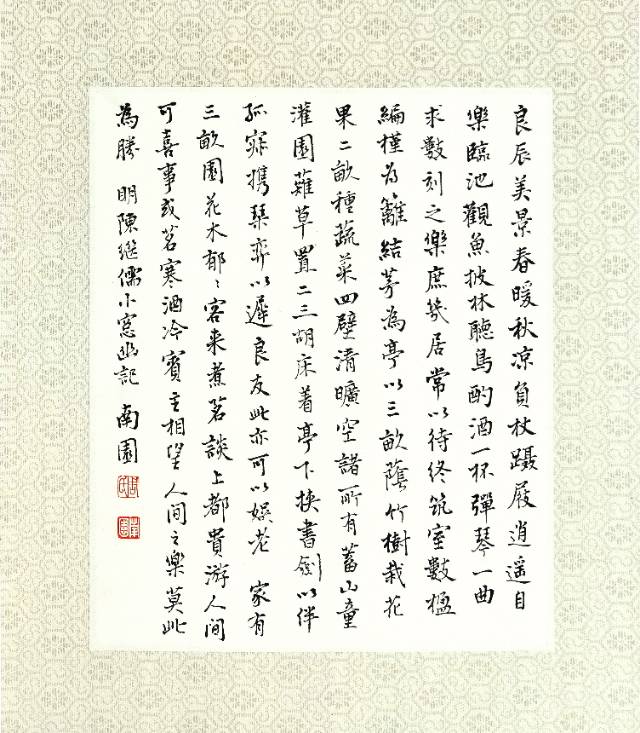 良辰美景春暖秋凉負杖躡屐逍遥自
樂臨池觀魚披林聽鳥酌酒一杯彈琴一曲
求數刻之樂庶幾居常以待终筑室數楹
編槿为籬結茅為亭以三畝蔭竹樹栽花
果二畝種蔬菜四壁清曠空諸所有蓄山童
灌園薙草置二三胡床着亭下挟書劍以伴
孤寂携琴弈以遲良友此亦可以娱老 家有
三畝園花木郁〻客来煮茗談上都貴游人間
可喜事或茗寒酒冷賓主相望人间之樂莫此
為勝 明陳继儒小窓幽記 南園